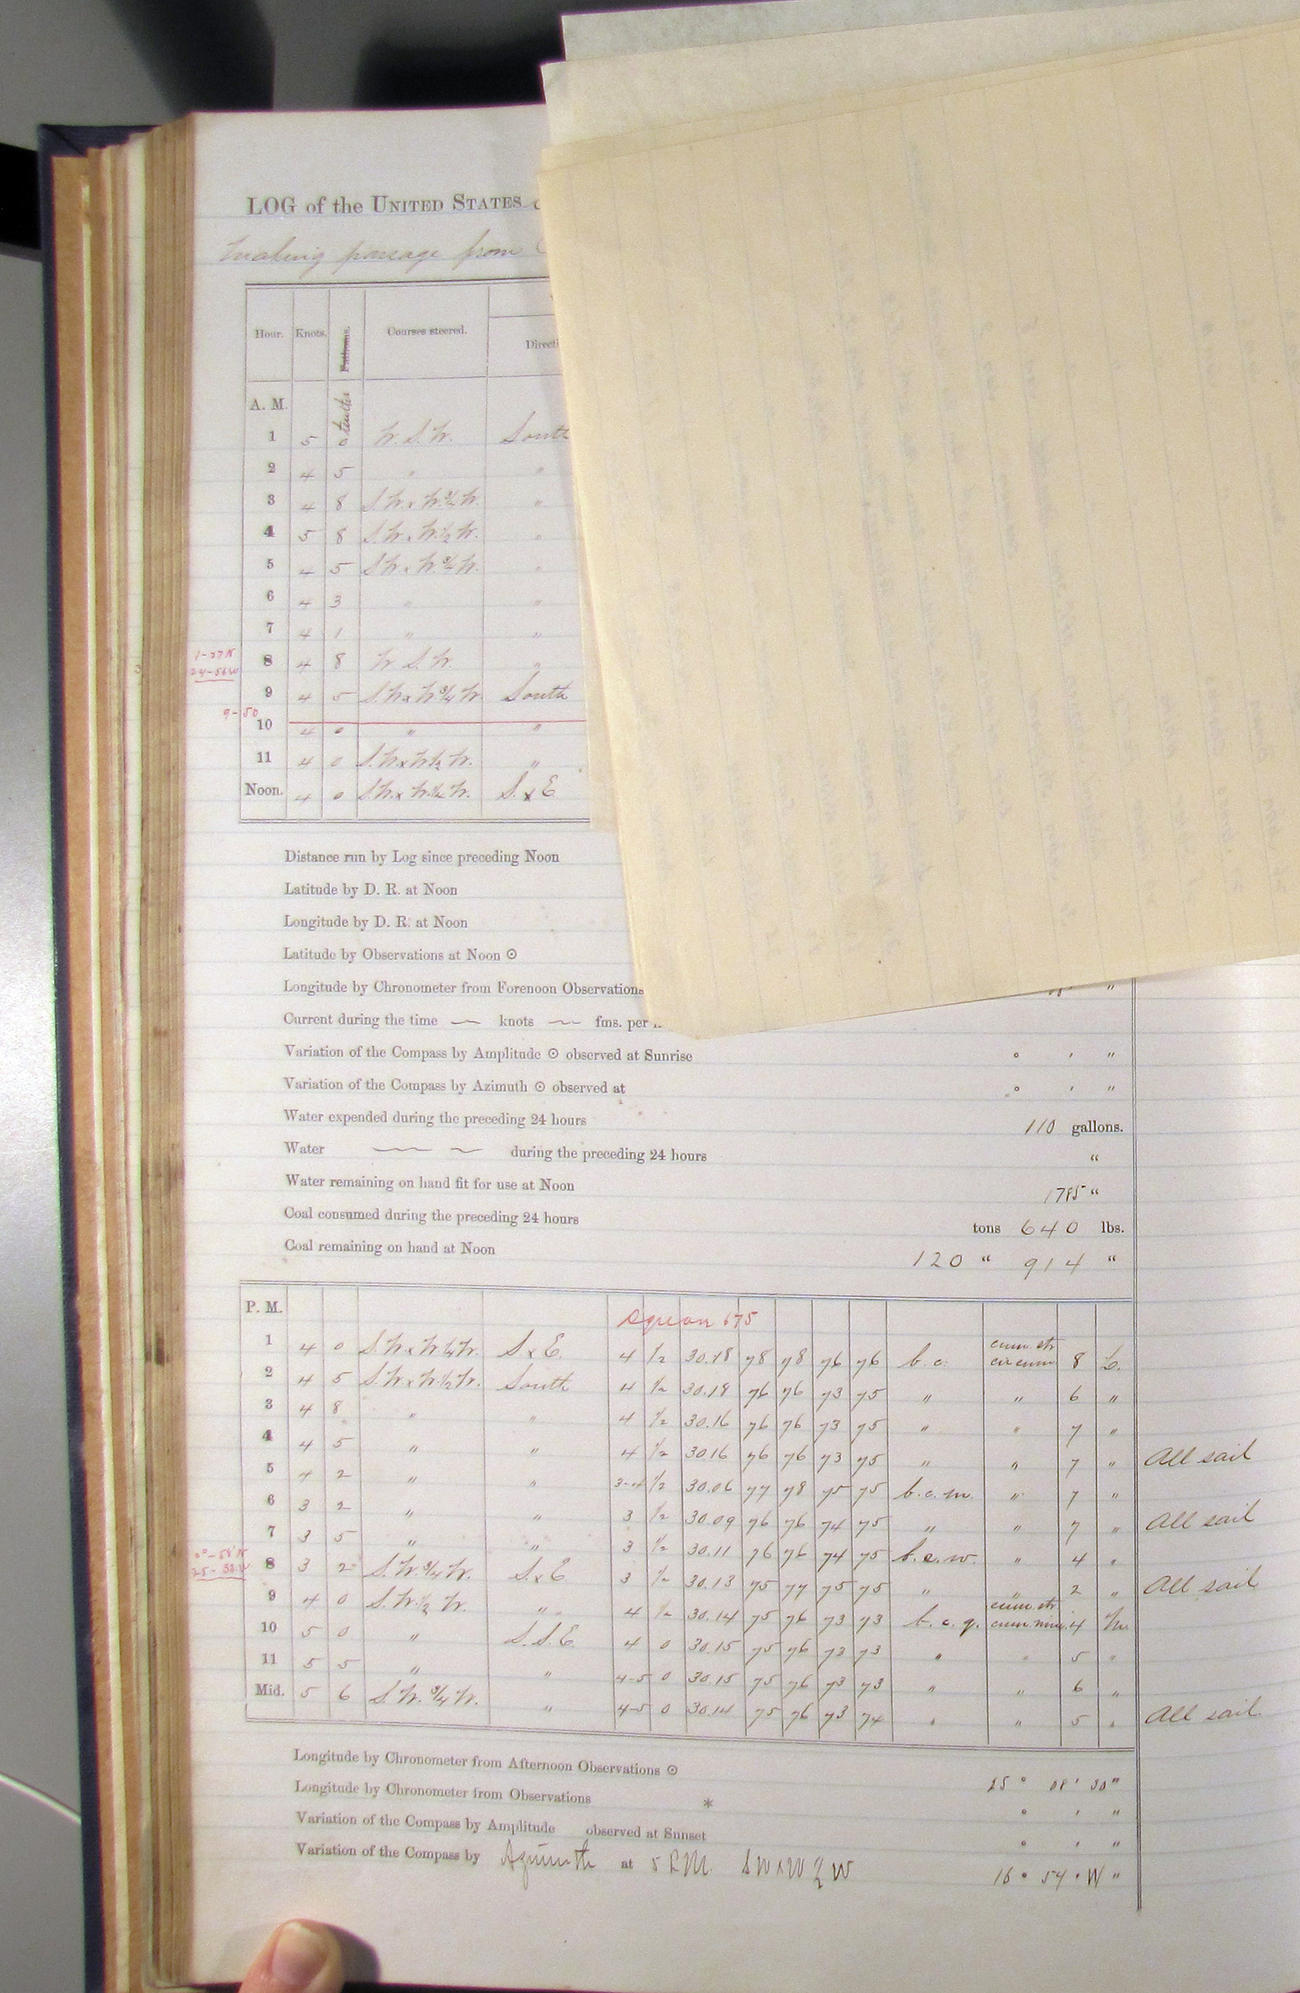 LOG of the UNITED STATES
Making passage from
Hour. Knots. Fathoms. Courses steered. Directi
tenths
A. M.
1 5 0 W. S. W. South
2 4 5 " "
3 4 8 S. W. x W. 3/4 W. "
4 5 8 S. W. x W. 1/2 W. "
5 4 5 S W x W. 3/4 W. "
6 4 3 " "
7 4 1 " "
1-27 N
24-56 W
8 4 8 W. S. W. "
9 4 5 S. W x W 3/4 W. South
9-50
10 4 0 " "
11 4 0 S. W x W 1/2 W. "
Noon. 4 0 S. W. x W. 1/4 W. S. x E
Distance run by Log since preceding Noon
Latitude by D. R. at Noon
Longitude by D. R. at Noon
Latitude by Observations at Noon ⊙
Longitude by Chronometer from Forenoon Observations "
Current during the time knots fms. per
Variation of the Compass by Amplitude ⊙ observed at Sunrise ° ' "
Variation of the Compass by Azimuth ⊙ observed at ° ' "
Water expended during the preceding 24 hours 110 gallons.
Water during the preceding 24 hours "
Water remaining on hand fit for use at Noon 1785 "
Coal consumed during the preceding 24 hours tons 640 lbs.
Coal remaining on hand at Noon 120 " 914 "
P. M.
675
1 4 0 S. W x W 1/4 W. S x E. 4 1/2 30.18 78 78 76 76 b. c. cum. str cir cum 8
2 4 5 S W x W. 1/2 W. South 4 1/2 30.18 76 76 73 75 " " 6 "
3 4 8 " " 4 1/2 30.16 76 76 73 75 " " 7 "
4 4 5 " " 4 1/2 30.16 76 76 73 75 " " 7 " All sail
5 4 2 " " 3-4 1/2 30.06 77 78 75 75 b. c. m. " 7 "
6 3 2 " " 3 1/2 30.09 76 76 74 75 " " 7 " All sail
7 3 5 " " 3 1/2 30.11 76 76 74 75 b. c. m. " 4 "
0°-58' N
8 3 2 S. W. 3/4 W. S. x E 3 1/2 30.13 75 77 75 75 " " 2 " All sail
9 4 0 S. W. 1/2 W. " 4 1/2 30.14 75 76 73 73 b. c. q. cum. str cum. nim. 4
10 5 0 " S. S. E. 4 0 30.15 75 76 73 73 " " 5 "
11 5 5 " " 4-5 0 30.15 75 76 73 73 " " 6 "
Mid. 5 6 S. W. 3/4 W. " 4-5 0 30.14 75 76 73 74 " " 5 " All sail
Longitude by Chronometer from Afternoon Observations ⊙ 25 ° 08 ' 30 "
Longitude by Chronometer from Observations * ° ' "
Variation of the Compass by Amplitude observed at Sunset ° ' "
Variation of the Compass by Azimuth at 5 P.M. SW x W 1/2 W 16 ° 54 ' W "